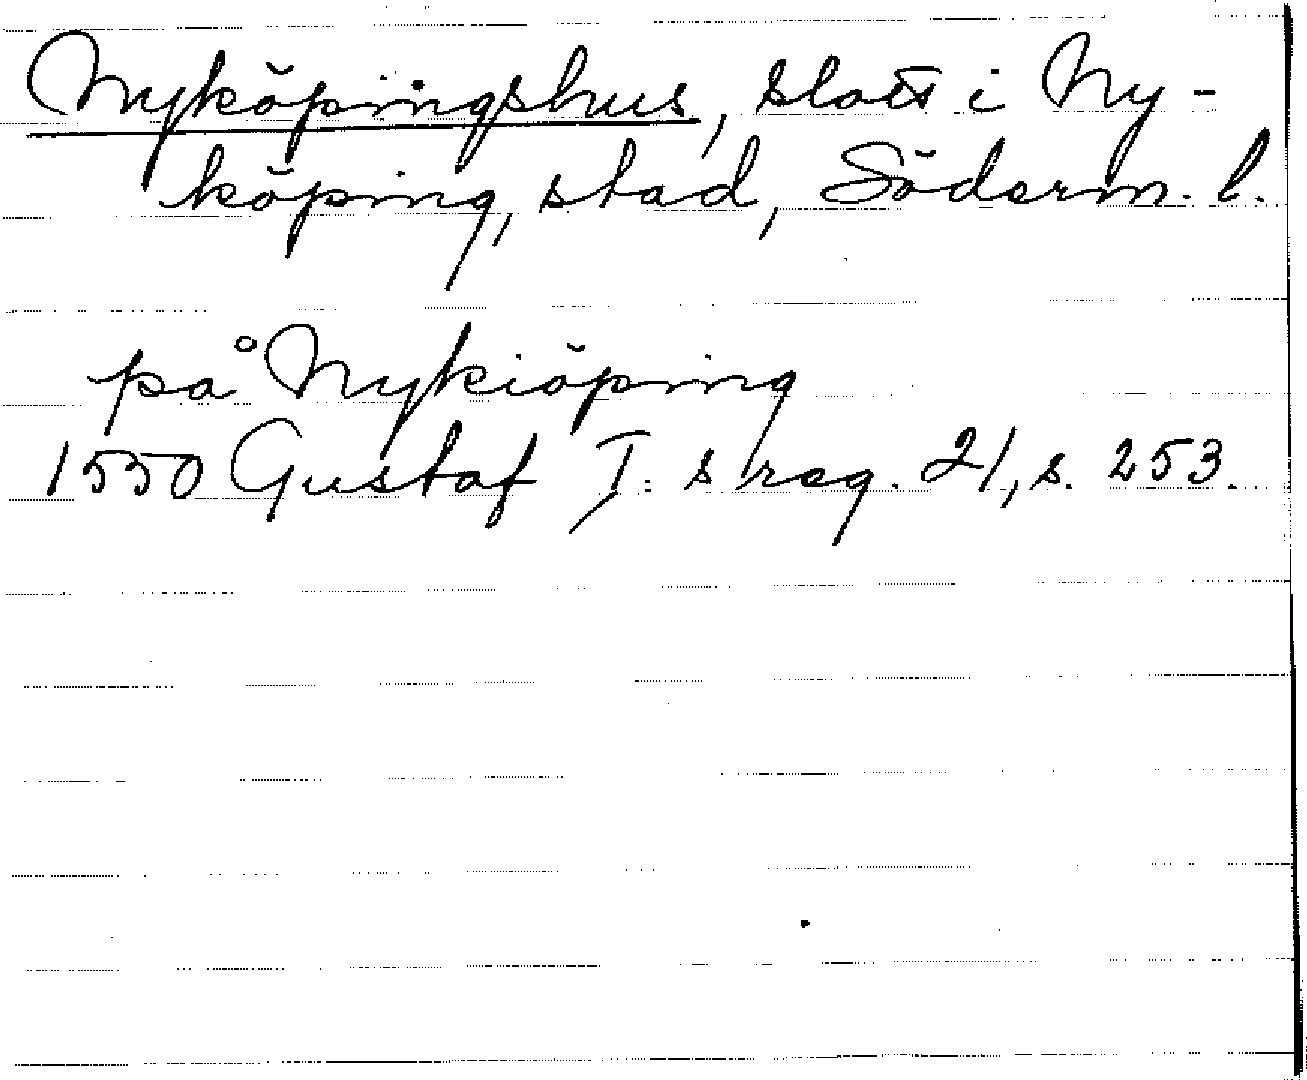 Nyköpingshus, slott i Ny-
köping, stad, Söderm. l.
på Nykiöping
1550 Gustaf I:s reg. 21, s. 253.